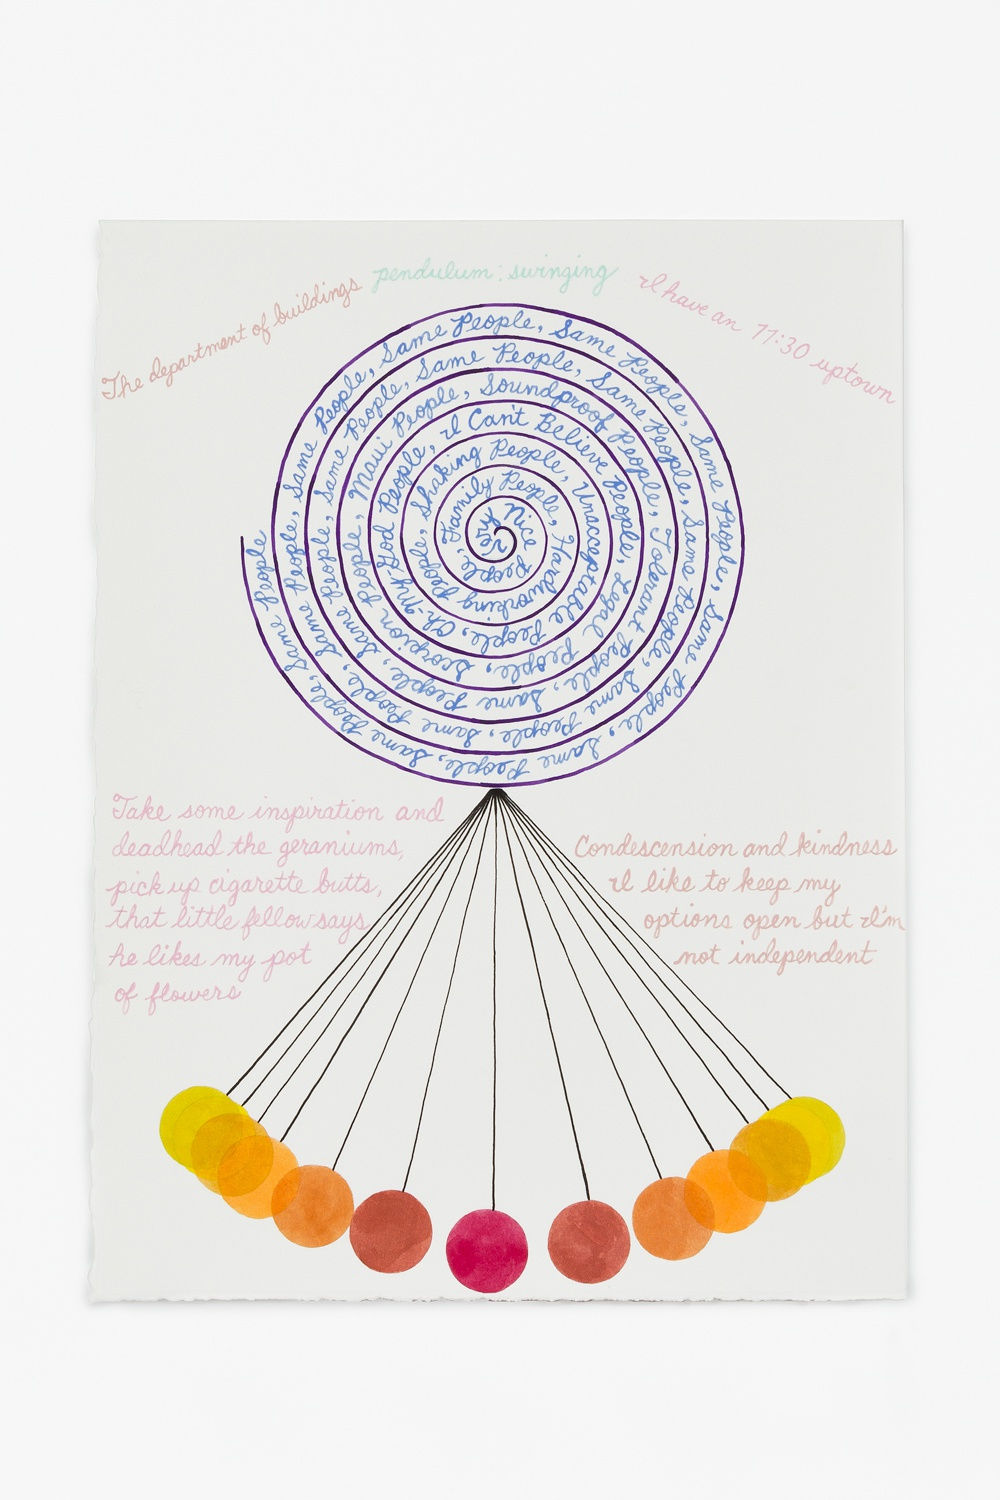 The department of buildings
pendulum: swinging
I have an 11:30 uptown
Very Nice People, Family People, Hardworking People, Shaking People, Unacceptable People, Oh-My-God People, I Can't Believe People, Legal People, Scorpion People, Maui People, Soundproof People, Tolerant People, Same People, Same People, Same People, Same People, Same People, Same People, Same People, Same People, Same People, Same People, Same People, Same People, Same People, Same People, Same People, Same People, Same People, Same People
Take some inspiration and
deadhead the geraniums,
pick up cigarette butts,
that little fellow says
he likes my pot
of flowers
Condescension and kindness
I like to keep my
options open but I'm
not independent